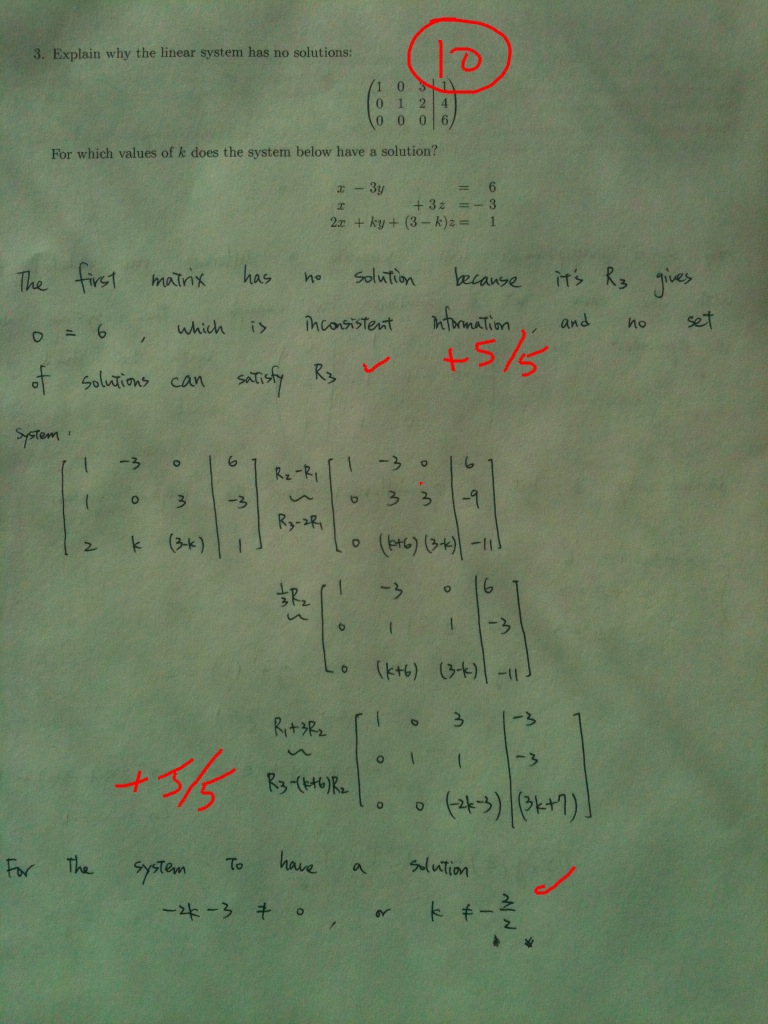 3. Explain why the linear system has no solutions:
10
1 0 3 | 1
0 1 2 | 4
0 0 0 | 6
For which values of k does the system below have a solution?
x − 3y = 6
x + 3z = − 3
2x + ky + (3 − k)z = 1
The first matrix has no solution because it's R3 gives
0 = 6 , which is inconsistent information , and no set
of solutions can satisfy R3 ✓ +5/5
System :
1 -3 0 | 6 R2-R1 1 -3 0 | 6
1 0 3 | -3 ~ 0 3 3 | -9
2 k (3-k) | 1 R3-2R1 0 (k+6) (3-k) | -11
1/3 R2 1 -3 0 | 6
~ 0 1 1 | -3
0 (k+6) (3-k) | -11
R1+3R2 1 0 3 | -3
~ 0 1 1 | -3
+5/5 R3-(k+6)R2 0 0 (-2k-3) | (3k+7)
For The system To have a solution
-2k-3 ≠ 0 , or k ≠ -3/2 ✓